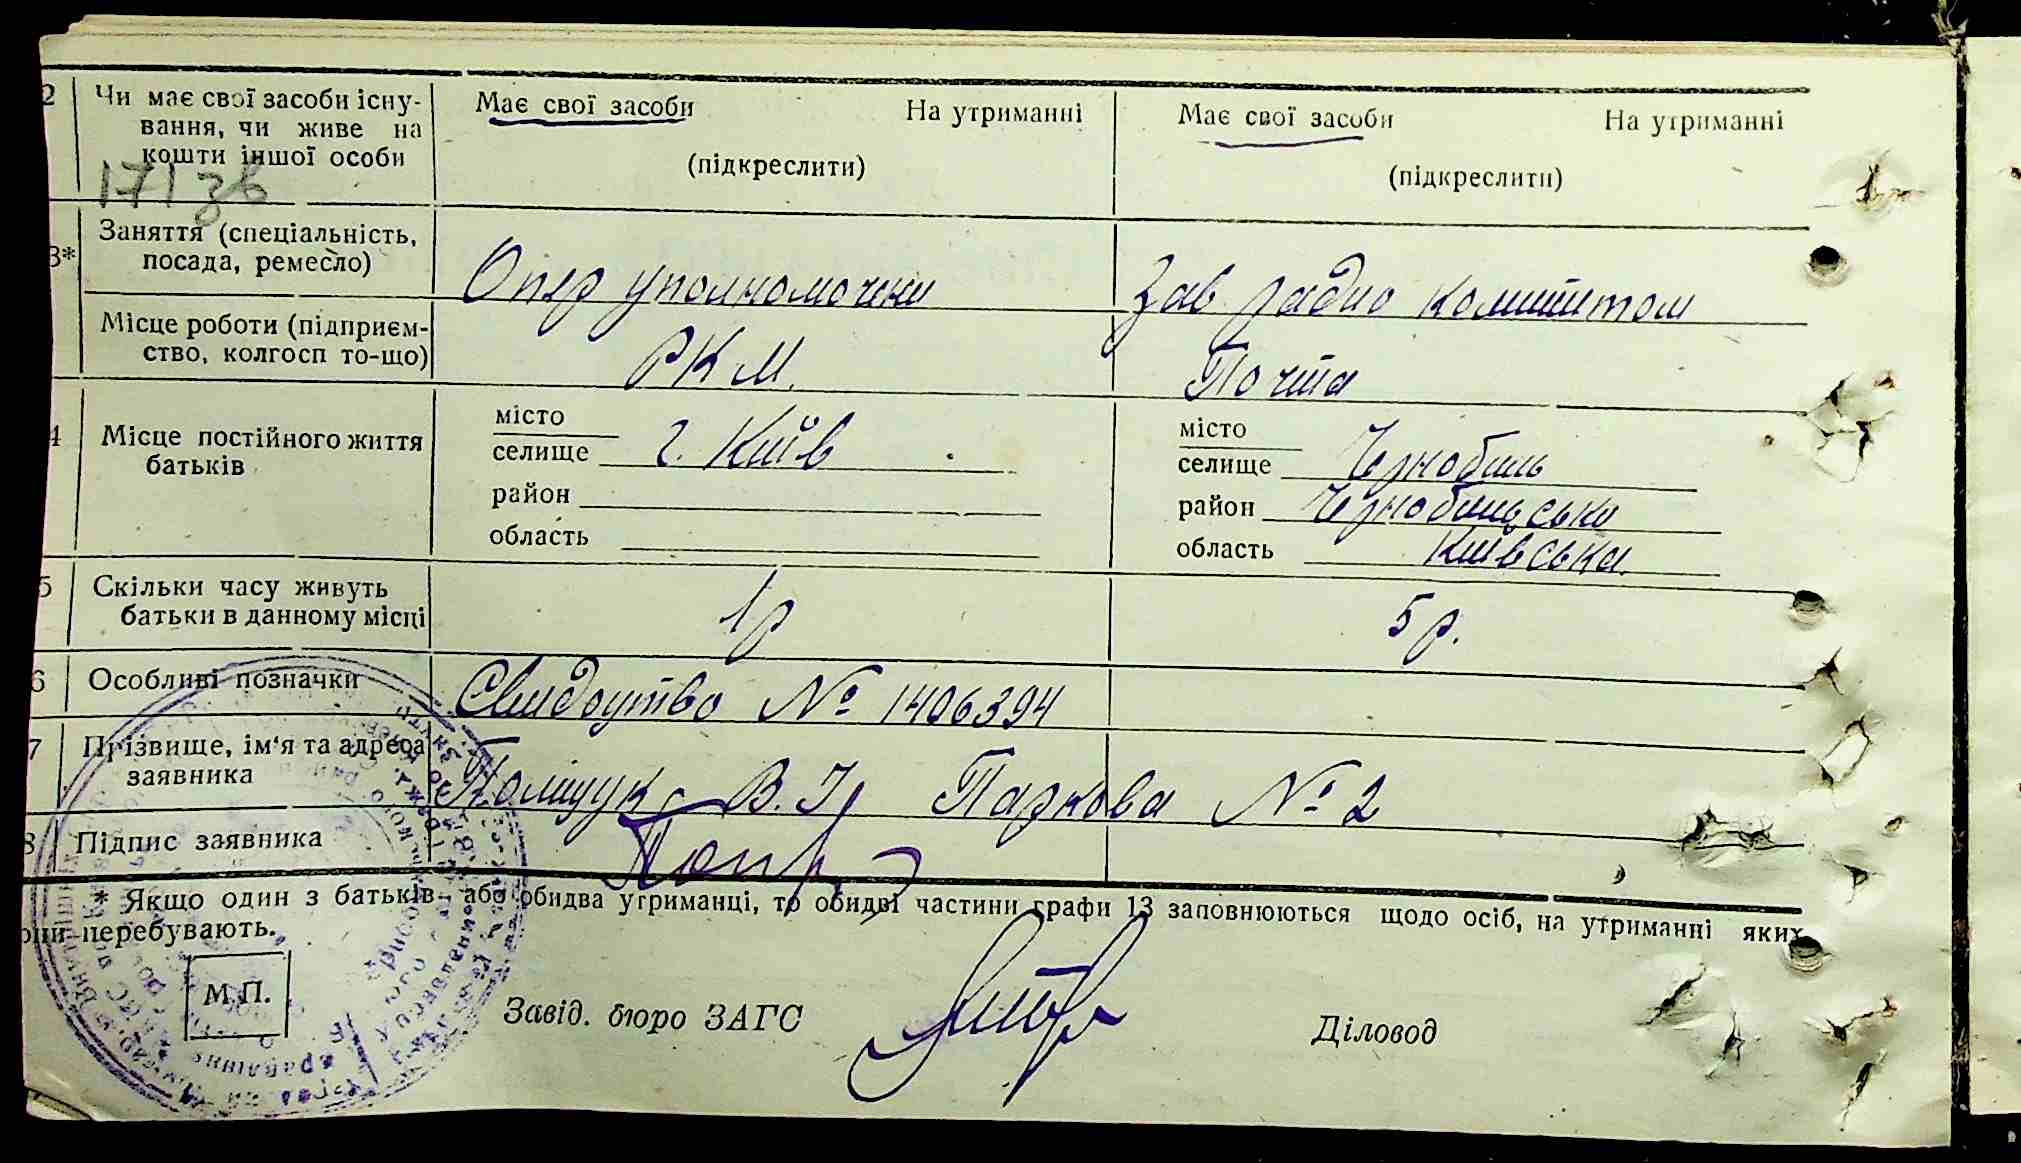 2 Чи має свої засоби існу- Має свої засоби На утриманні Має свої засоби На утриманні
вання, чи живе на
кошти іншої особи (підкреслити) (підкреслити)
171зв
3* Заняття (спеціальність,
посада, ремесло) Опер уполномочени Зав радио комитетом
Місце роботи (підприєм-
ство, колгосп то-що) РКМ. Почта
4 Місце постійного життя
батьків
місто місто
селище г. Київ селище Чернобиль
район район Чернобильськи
область область Київська
5 Скільки часу живуть
батьки в данному місці 1р 5 р.
6 Особливі позначки Свидоцтво № 1406394
7 Прізвище, ім'я та адреса
заявника Поліщук В. І. Паркова № 2
8 Підпис заявника
* Якщо один з батьків або обидва утриманці, то обидві частини графи 13 заповнюються щодо осіб, на утриманні яких
они перебувають.
М.П.
Завід. бюро ЗАГС Діловод